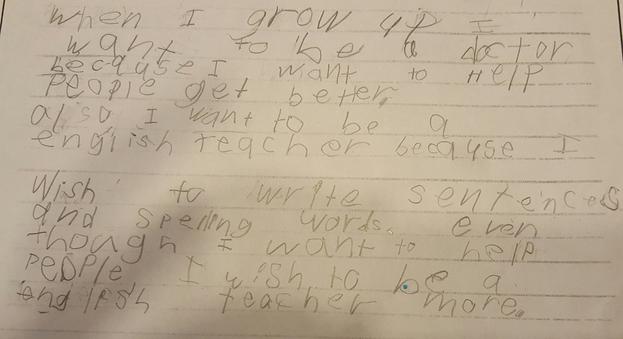 when I grow up I
want to be a doctor
because I want to Help
People get better,
also I want to be a
english teacher because I
Wish to write sentences
and spelling words. even
though I want to help
People I wish to be a
english teacher more.